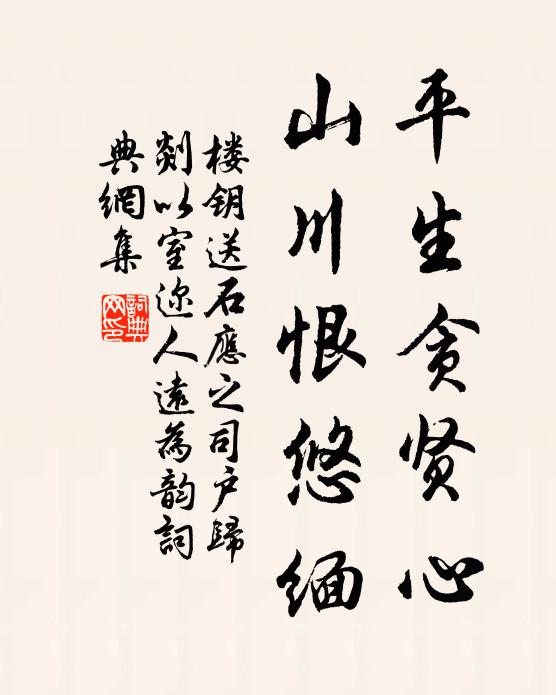 平生贪贤心
山川恨悠缅
楼钥送石應之司户歸
剡以室迩人遠為韵詞
典網集
詞典
网印